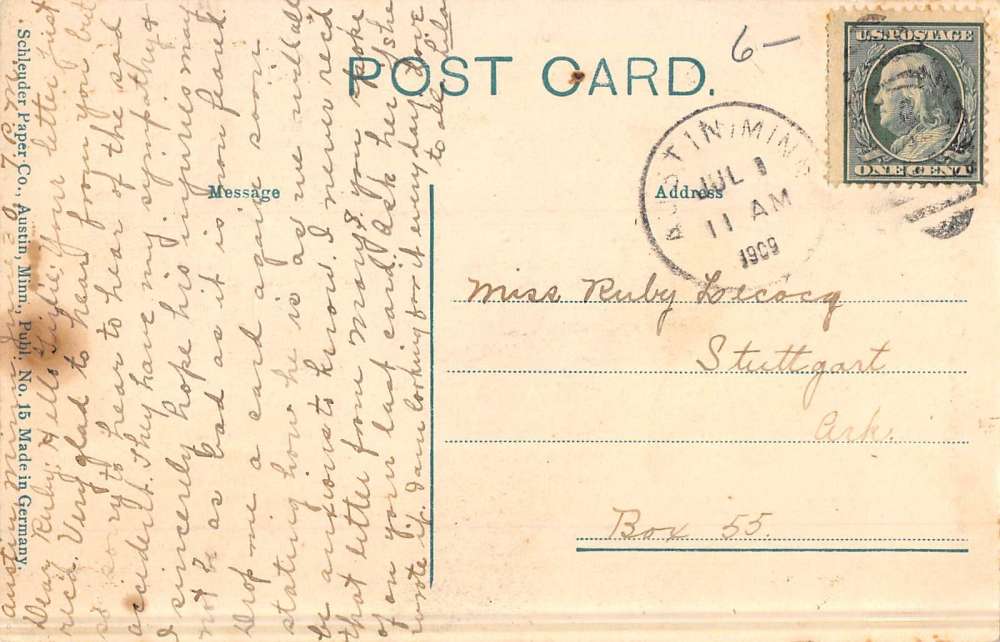 POST CARD.
6 -
U.S. POSTAGE
ONE CENT
AUSTIN, MINN.
JUL 1
11 AM
1909
Message
Address
Miss Ruby Lecocq
Stuttgart
Ark.
Box 55.
Schleuder Paper Co., Austin, Minn., Publ. No. 15 Made in Germany.
Austin Minn 7 P.M.
Dear Ruby: Hello Your letter just
rec'd. Very glad to hear from you but
so sorry to hear of the sad
accident. They have my sympathy &
I sincerely hope his injuries may
not be as bad as it is now feared.
Drop me a card again soon
stating how he is as we will all
be anxious to know. I never rec'd
that letter from Mary? you spoke
of on your last card. Ask her if she
wrote it. I am looking for it every day. Love
to all.